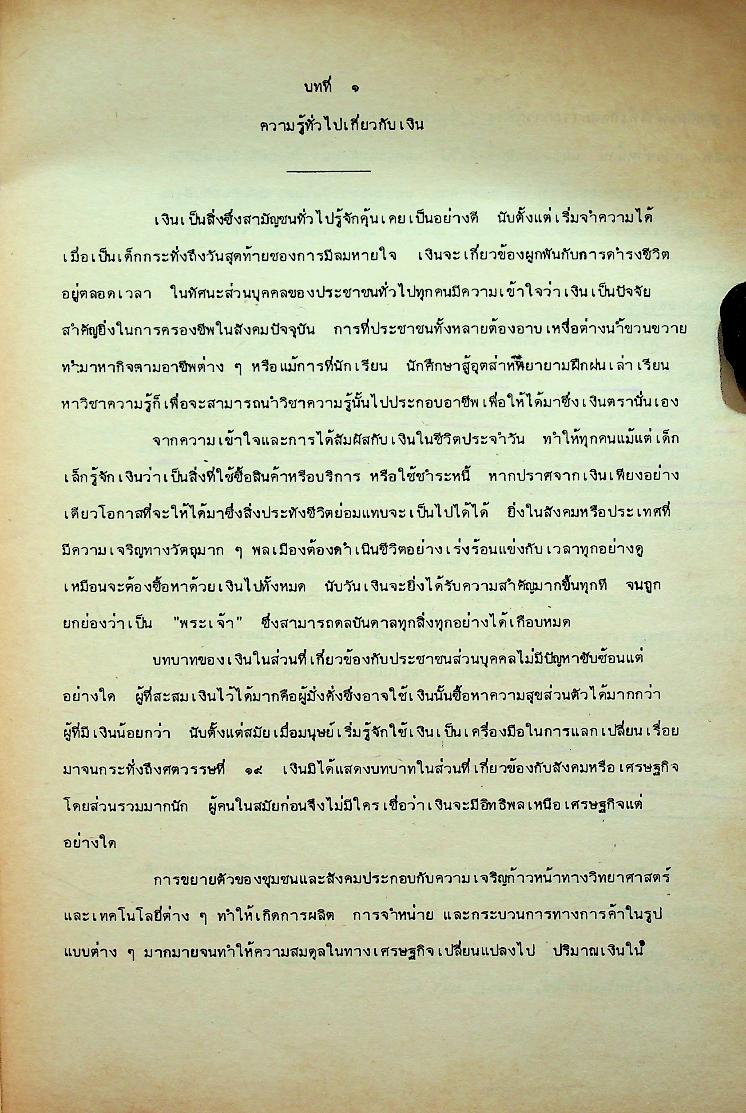 บทที่ ๑
ความรู้ทั่วไปเกี่ยวกับเงิน
เงินเป็นสิ่งซึ่งสามัญชนทั่วไปรู้จักคุ้นเคยเป็นอย่างดี นับตั้งแต่เริ่มจำความได้
เมื่อเป็นเด็กกระทั่งถึงวันสุดท้ายของการมีลมหายใจ เงินจะเกี่ยวข้องผูกพันกับการดำรงชีวิต
อยู่ตลอดเวลา ในทัศนะส่วนบุคคลของประชาชนทั่วไปทุกคนมีความเข้าใจว่าเงินเป็นปัจจัย
สำคัญยิ่งในการครองชีพในสังคมปัจจุบัน การที่ประชาชนทั้งหลายต้องอาบเหงื่อต่างน้ำขวนขวาย
ทำมาหากิจตามอาชีพต่าง ๆ หรือแม้การที่นักเรียน นักศึกษาสู้อุตส่าห์พยายามฝึกฝนเล่าเรียน
หาวิชาความรู้ก็เพื่อจะสามารถนำวิชาความรู้นั้นไปประกอบอาชีพเพื่อให้ได้มาซึ่งเงินตรานั่นเอง
จากความเข้าใจและการได้สัมผัสกับเงินในชีวิตประจำวัน ทำให้ทุกคนแม้แต่เด็ก
เล็กรู้จักเงินว่าเป็นสิ่งที่ใช้ซื้อสินค้าหรือบริการ หรือใช้ชำระหนี้ หากปราศจากเงินเพียงอย่าง
เดียวโอกาสที่จะให้ได้มาซึ่งสิ่งประทังชีวิตย่อมแทบจะเป็นไปได้ได้ ยิ่งในสังคมหรือประเทศที่
มีความเจริญทางวัตถุมาก ๆ พลเมืองต้องดำเนินชีวิตอย่างเร่งร้อนแข่งกับเวลาทุกอย่างดู
เหมือนจะต้องซื้อหาด้วยเงินไปทั้งหมด นับวันเงินจะยิ่งได้รับความสำคัญมากขึ้นทุกที จนถูก
ยกย่องว่าเป็น "พระเจ้า" ซึ่งสามารถดลบันดาลทุกสิ่งทุกอย่างได้เกือบหมด
บทบาทของเงินในส่วนที่เกี่ยวข้องกับประชาชนส่วนบุคคลไม่มีปัญหาซับซ้อนแต่
อย่างใด ผู้ที่สะสมเงินไว้ได้มากคือผู้มั่งคั่งซึ่งอาจใช้เงินนั้นซื้อหาความสุขส่วนตัวได้มากกว่า
ผู้ที่มีเงินน้อยกว่า นับตั้งแต่สมัยเมื่อมนุษย์เริ่มรู้จักใช้เงินเป็นเครื่องมือในการแลกเปลี่ยนเรื่อย
มาจนกระทั่งถึงศตวรรษที่ ๑๙ เงินมิได้แสดงบทบาทในส่วนที่เกี่ยวข้องกับสังคมหรือเศรษฐกิจ
โดยส่วนรวมมากนัก ผู้คนในสมัยก่อนจึงไม่มีใครเชื่อว่าเงินจะมีอิทธิพลเหนือเศรษฐกิจแต่
อย่างใด
การขยายตัวของชุมชนและสังคมประกอบกับความเจริญก้าวหน้าทางวิทยาศาสตร์
และเทคโนโลยีต่าง ๆ ทำให้เกิดการผลิต การจำหน่าย และกระบวนการทางการค้าในรูป
แบบต่าง ๆ มากมายจนทำให้ความสมดุลในทางเศรษฐกิจเปลี่ยนแปลงไป ปริมาณเงินใน